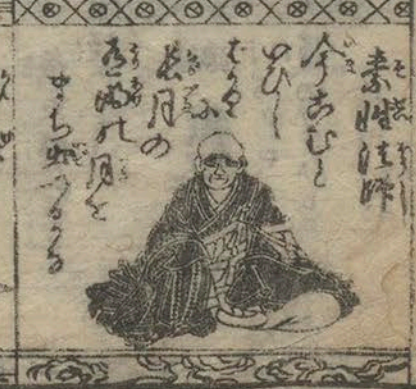 素性法師
今こむと
いひし
ばかりに
長月の
有明の月を
まち出つるかな